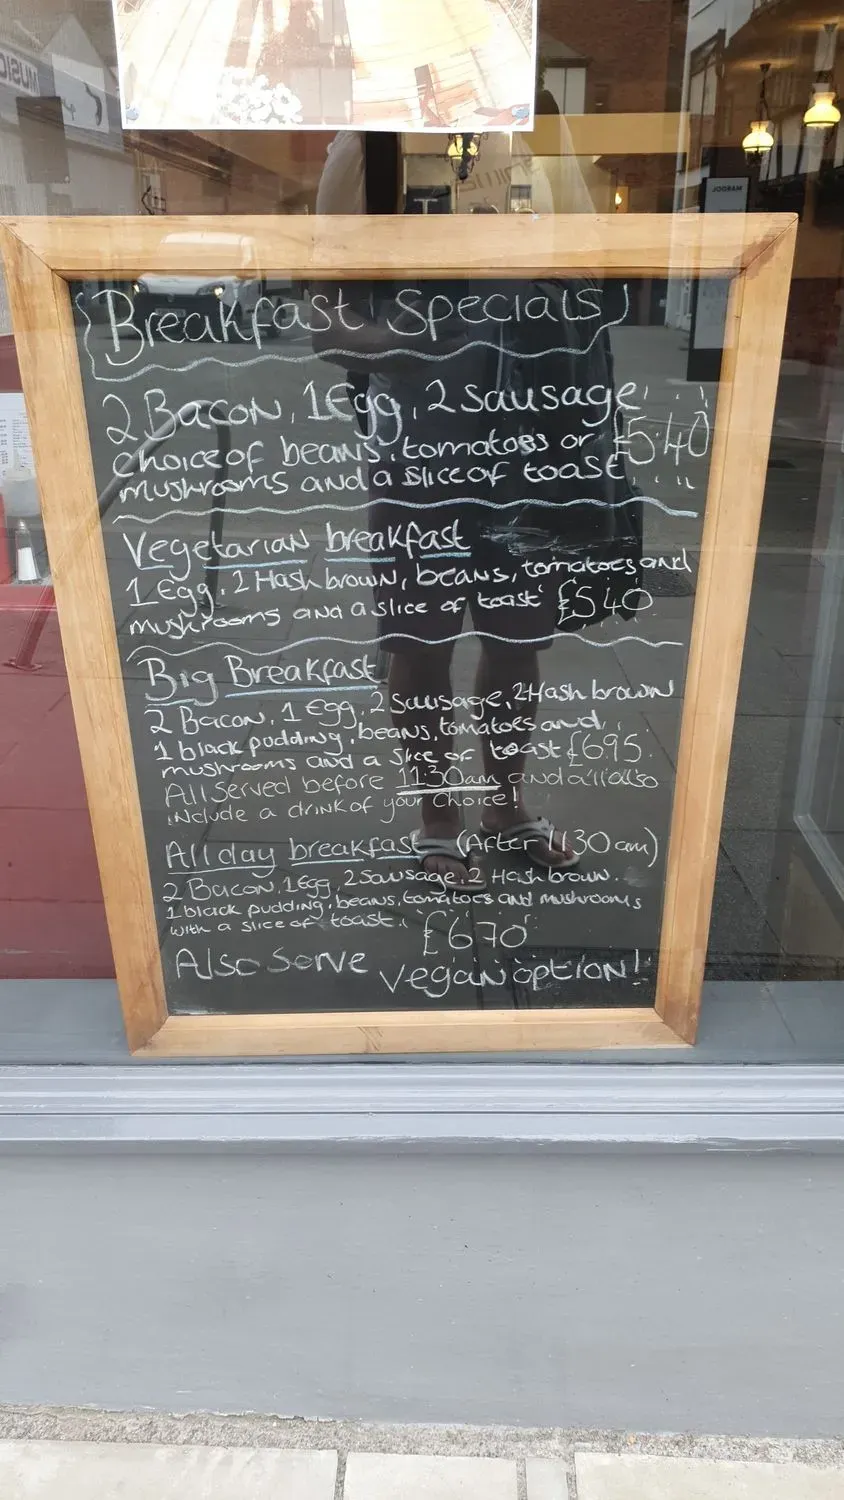 MUSIC
MARGOL
Breakfast Specials
2 Bacon, 1 Egg, 2 Sausage
choice of beans, tomatoes or £5.40
mushrooms and a slice of toast
Vegetarian breakfast
1 Egg, 2 Hash brown, beans, tomatoes and
mushrooms and a slice of toast £5.40
Big Breakfast
2 Bacon, 1 Egg, 2 Sausage, 2 Hash brown
1 black pudding, beans, tomatoes and
mushrooms and a slice of toast £6.95
All Served before 11:30am and all also
include a drink of your choice!
All day breakfast (After 1130 am)
2 Bacon, 1 Egg, 2 Sausage, 2 Hash brown.
1 black pudding, beans, tomatoes and mushrooms
with a slice of toast. £6.70
Also Serve vegan option!